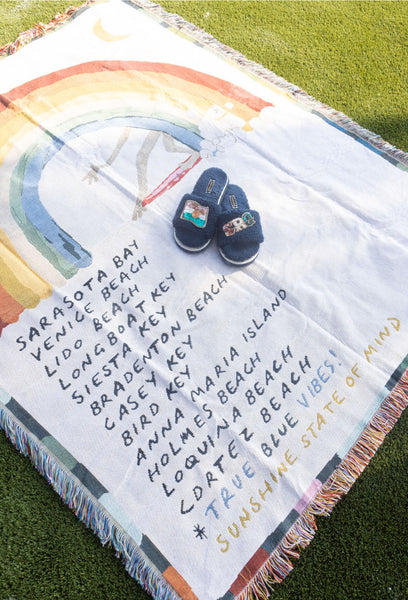 SARASOTA BAY
VENICE BEACH
LIDO BEACH
LONGBOAT KEY
SIESTA KEY
BRADENTON BEACH
CASEY KEY
BIRD KEY
ANNA MARIA ISLAND
HOLMES BEACH
LOQUINA BEACH
CORTEZ BEACH
*TRUE BLUE VIBES!
SUNSHINE STATE OF MIND